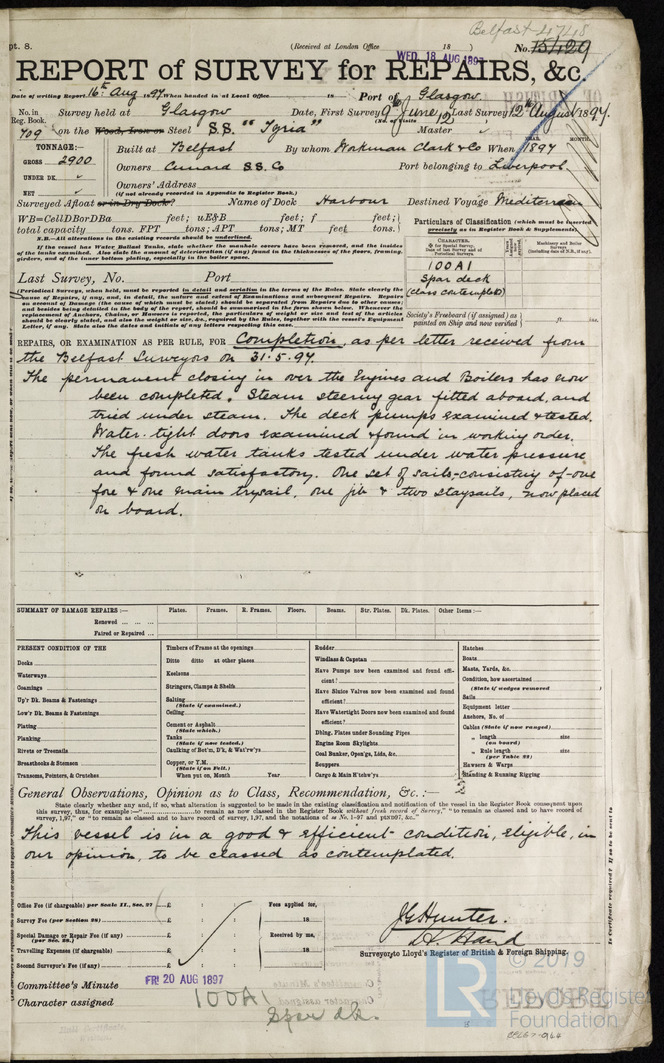 Belfast 4748
pt. 8.
(Received at London Office WED. 18 AUG 1897 18 )
No. 15,129
REPORT of SURVEY for REPAIRS, &c.
Date of writing Report 16th Aug 1897 When handed in at Local Office 18 Port of Glasgow
No. in Reg. Book. 709
Survey held at Glasgow Date, First Survey 9th June, Last Survey 12th August 1897.
(No. of Visits 12)
on the Wood, Iron or Steel S.S. "Tyria" Master
TONNAGE:—
GROSS 2900
UNDER DK.
NET
Built at Belfast By whom Workman Clark & Co When 1897
YEAR. MONTH.
Owners Cunard S.S. Co Port belonging to Liverpool
Owners' Address
(if not already recorded in Appendix to Register Book.)
Surveyed Afloat or in Dry Dock? Name of Dock Harbour Destined Voyage Mediterranean
WB=CellDBorDBa feet; uE&B feet; f feet;
total capacity tons. FPT tons; APT tons; MT feet tons.
N.B.—All alterations in the existing records should be underlined.
If the vessel has Water Ballast Tanks, state whether the manhole covers have been removed, and the insides
of the tanks examined. Also state the amount of deterioration (if any) found in the thicknesses of the floors, framing,
girders, and of the inner bottom plating, especially in the boiler space.
Particulars of Classification (which must be inserted
precisely as in Register Book & Supplements).
CHARACTER.
100A1
Spar deck
(class contemplated)
Society's Freeboard (if assigned) as
painted on Ship and now verified ft. ins.
Last Survey, No. Port
(Periodical Surveys, when held, must be reported in detail and seriatim in the terms of the Rules. State clearly the
cause of Repairs, if any, and, in detail, the nature and extent of Examinations and subsequent Repairs. Repairs
on account of Damage (the cause of which must be stated) should be separated from Repairs due to other causes;
and besides being detailed in the body of the report, should be summarised in the form below. Whenever the
replacement of Anchors, Chains, or Hawsers is reported, the particulars of weight or size and test of the articles
should be stated, and also the weight or size, &c., required by the Rules, together with the vessel's Equipment
Letter, if any. State also the dates and initials of any letters respecting this case.
REPAIRS, OR EXAMINATION AS PER RULE, FOR Completion, as per letter received from
the Belfast Surveyors on 31.5.97.
The permanent closing in over the Engines and Boilers has now
been completed. Steam steering gear fitted aboard, and
tried under steam. The deck pumps examined & tested.
Water-tight doors examined & found in working order.
The fresh water tanks tested under water pressure
and found satisfactory. One set of sails, consisting of one
fore & one main trysail, one jib & two staysails, now placed
on board.
SUMMARY OF DAMAGE REPAIRS:— Plates. Frames. R. Frames. Floors. Beams. Str. Plates. Dk. Plates. Other Items:—
Renewed ... ... ...
Faired or Repaired ...
PRESENT CONDITION OF THE
Decks
Waterways
Coamings
Up'r Dk. Beams & Fastenings
Low'r Dk. Beams & Fastenings
Plating
Planking
Rivets or Treenails
Breasthooks & Stemson
Transoms, Pointers, & Crutches
Timbers of Frame at the openings
Ditto ditto at other places
Keelsons
Stringers, Clamps & Shelfs
Salting
(State if examined.)
Ceiling
Cement or Asphalt
(State which.)
Tanks
(State if now tested.)
Caulking of Bot'm, D'k, & Wat'rw'ys
Copper, or Y.M.
(State if on Felt.)
When put on, Month Year
Rudder
Windlass & Capstan
Have Pumps now been examined and found effi-
cient?
Have Sluice Valves now been examined and found
efficient?
Have Watertight Doors now been examined and found
efficient?
Dblng. Plates under Sounding Pipes
Engine Room Skylights
Coal Bunker, Open'gs, Lids, &c.
Scuppers
Cargo & Main H'tchw'ys
Hatches
Boats
Masts, Yards, &c.
Condition, how ascertained
(State if wedges removed )
Sails
Equipment letter
Anchors, No. of
Cables (State if now ranged)
„ length size
(on board)
„ Rule length size
(per Table 22)
Hawsers & Warps
Standing & Running Rigging
General Observations, Opinion as to Class, Recommendation, &c.:—
State clearly whether any and, if so, what alteration is suggested to be made in the existing classification and notification of the vessel in the Register Book consequent upon
this survey, thus, for example:—" to remain as now classed in the Register Book without fresh record of Survey," "to remain as classed and to have record of
survey, 1,97," or "to remain as classed and to have record of survey, 1,97, and the notations of ss No. 1-97 and ptND97, &c."
This vessel is in a good & efficient condition, eligible, in
our opinion, to be classed as contemplated.
Office Fee (if chargeable) per Scale II., Sec. 27 £ : :
Survey Fee (per Section 28) £ : :
Special Damage or Repair Fee (if any) £ : :
(per Sec. 28.)
Travelling Expenses (if chargeable) £ : :
Second Surveyor's Fee (if any) £ : :
Fees applied for,
18
Received by me,
18
J G Hunter.
Surveyor to Lloyd's Register of British & Foreign Shipping.
Committee's Minute FRI 20 AUG 1897
Character assigned 100A1
Spar dk.
© 2019
LR
Lloyd's Register
Foundation